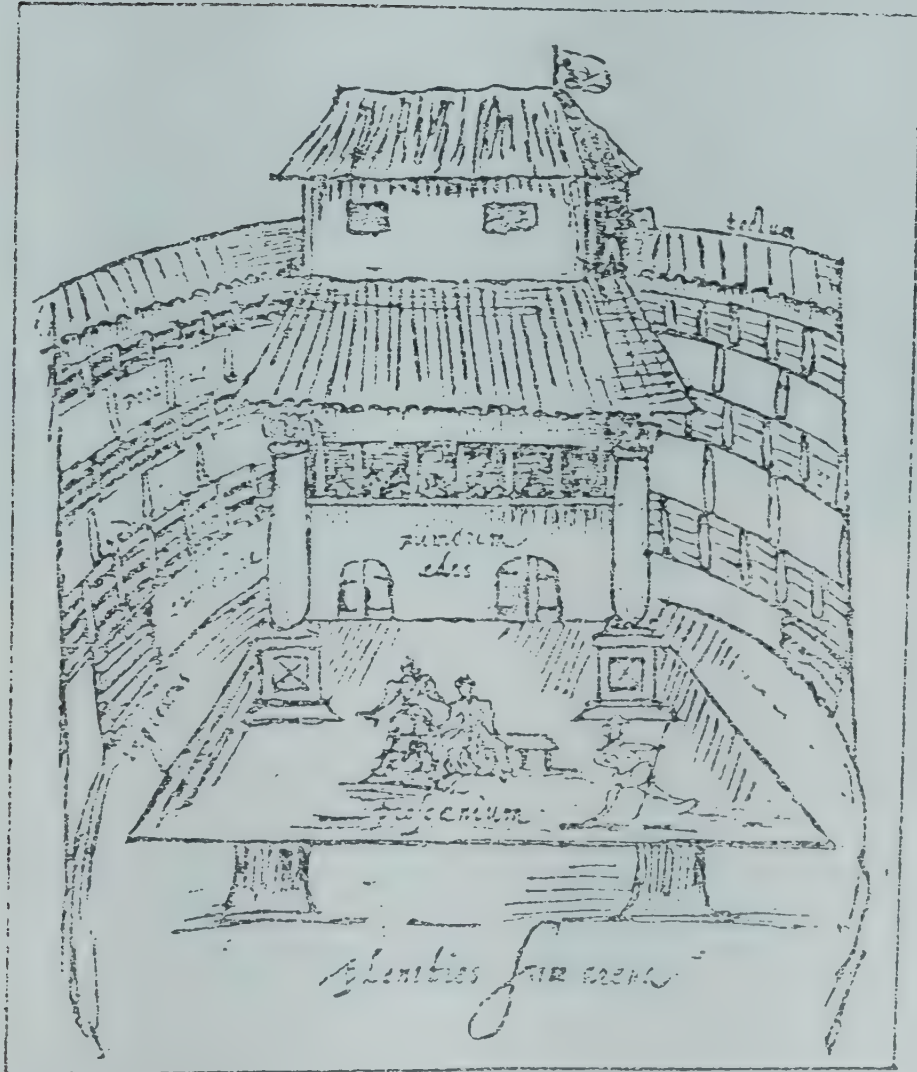 tectum
mimorum
ædes
proscænium
planities sive arena